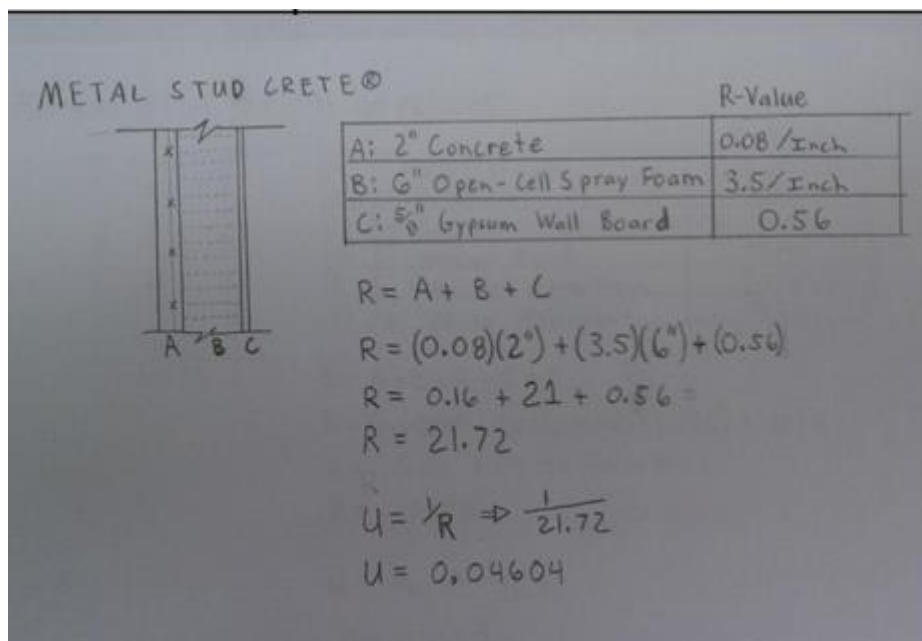 METAL STUD CRETE®
R-Value
A: 2" Concrete 0.08/Inch
B: 6" Open-Cell Spray Foam 3.5/Inch
C: 5/8" Gypsum Wall Board 0.56
A B C
R = A + B + C
R = (0.08)(2") + (3.5)(6") + (0.56)
R = 0.16 + 21 + 0.56 =
R = 21.72
U = 1/R ⇒ 1/21.72
U = 0.04604